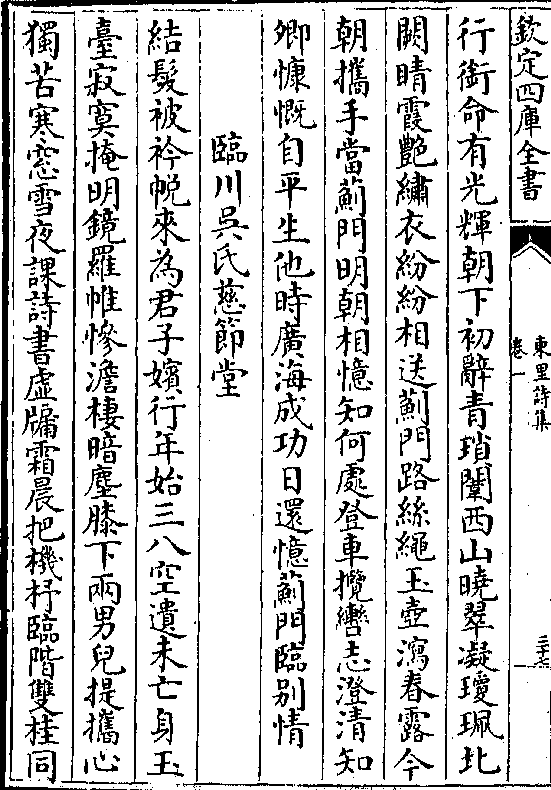 欽定四庫全書
東里詩集
卷一
三十七
行銜命有光輝朝下初辭青瑣闈西山曉翠凝瓊珮北
闕晴霞艷繡衣紛紛相送薊門路絲繩玉壺瀉春露今
朝攜手當薊門明朝相憶知何處登車攬轡志澄清知
卿慷慨自平生他時廣海成功日還憶薊門臨別情
臨川吳氏慈節堂
結髮被衿帨來為君子嬪行年始三八空遺未亡身玉
臺寂寞掩明鏡羅帷慘澹棲暗塵膝下兩男兒提攜心
獨苦寒窓雪夜課詩書虛牖霜晨把機杼臨階雙桂同